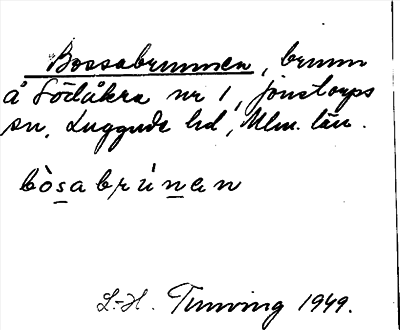 Bossabrunnen, brunn
å Södåkra nr 1, Jonstorps
sn, Luggude hd, Mlm. län.
bòsabrúnan
L.-H. Tunving 1949.